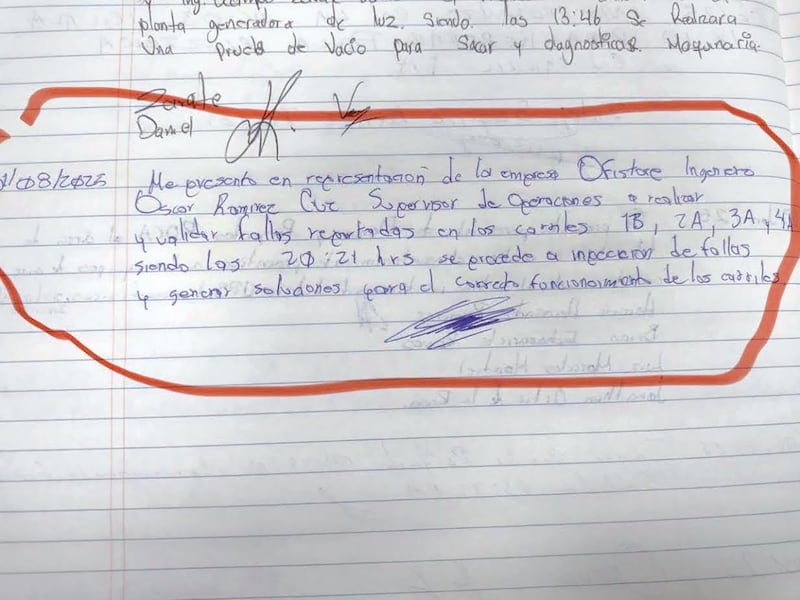 planta generadora de luz. Siendo. las 13:46 Se Realizara
Una Prueba de Vacio para Sacar y diagnosticas. Maquinaria.
Zarate
Daniel
/08/2025 Me presento en representación de la empresa Ofistore Ingeniero
Oscar Ramirez Cruz Supervisor de Operaciones a realizar
y validar fallas reportadas en los carriles 1B, 2A, 3A y 4A
siendo las 20:21 hrs se procede a inpeccion de fallas
y generar soluciones para el correcto funcionamiento de los carriles